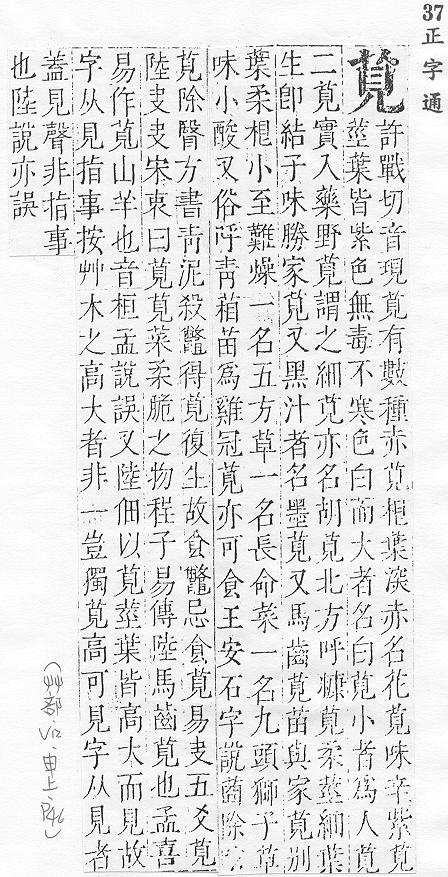 37正字通
莧
許戰切音現莧有數種赤莧根葉深赤名花莧味辛紫莧
莖葉皆紫色無毒不寒色白而大者名白莧小者為人莧
二莧實入藥野莧謂之細莧亦名胡莧北方呼糠莧柔莖細葉
生卽結子味勝家莧又黑汁者名墨莧又馬齒莧苗與家莧別
葉柔根小至難燥一名五方草一名長命菜一名九頭獅子草
味小酸又俗呼靑葙苗為雞冠莧亦可食王安石字說莧除
莧除瞖方書靑泥殺鼈得莧復生故食鼈忌食莧易夬五爻莧
陸夬夬宋衷曰莧莧菜柔脆之物程子易傳陸馬齒莧也孟喜
易作莧山羊也音桓孟說誤又陸佃以莧莖葉皆高大而見故
字从見指事按艸木之高大者非一豈獨莧高可見字从見者
蓋見聲非指事
也陸說亦誤